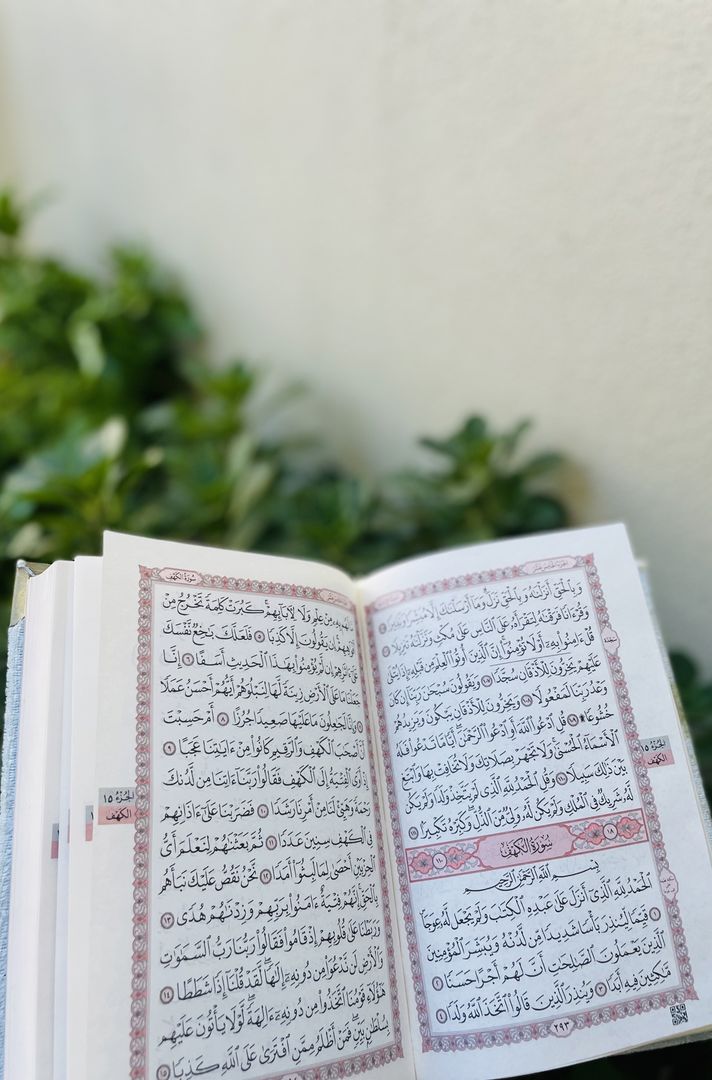 الجزء الخامس عشر
وَبِٱلْحَقِّ أَنزَلْنَٰهُ وَبِٱلْحَقِّ نَزَلَ وَمَآ أَرْسَلْنَٰكَ إِلَّا مُبَشِّرًا وَنَذِيرًا ١٠٥
وَقُرْءَانًا فَرَقْنَٰهُ لِتَقْرَأَهُۥ عَلَى ٱلنَّاسِ عَلَىٰ مُكْثٍ وَنَزَّلْنَٰهُ تَنزِيلًا ١٠٦
قُلْ ءَامِنُوا۟ بِهِۦٓ أَوْ لَا تُؤْمِنُوٓا۟ إِنَّ ٱلَّذِينَ أُوتُوا۟ ٱلْعِلْمَ مِن قَبْلِهِۦٓ إِذَا يُتْلَىٰ
عَلَيْهِمْ يَخِرُّونَ لِلْأَذْقَانِ سُجَّدًا ١٠٧ وَيَقُولُونَ سُبْحَٰنَ رَبِّنَآ إِن كَانَ
وَعْدُ رَبِّنَا لَمَفْعُولًا ١٠٨ وَيَخِرُّونَ لِلْأَذْقَانِ يَبْكُونَ وَيَزِيدُهُمْ
خُشُوعًا ۩ ١٠٩ قُلِ ٱدْعُوا۟ ٱللَّهَ أَوِ ٱدْعُوا۟ ٱلرَّحْمَٰنَ أَيًّا مَّا تَدْعُوا۟ فَلَهُ
ٱلْأَسْمَآءُ ٱلْحُسْنَىٰ وَلَا تَجْهَرْ بِصَلَاتِكَ وَلَا تُخَافِتْ بِهَا وَٱبْتَغِ
بَيْنَ ذَٰلِكَ سَبِيلًا ١١٠ وَقُلِ ٱلْحَمْدُ لِلَّهِ ٱلَّذِى لَمْ يَتَّخِذْ وَلَدًا وَلَمْ يَكُن
لَّهُۥ شَرِيكٌ فِى ٱلْمُلْكِ وَلَمْ يَكُن لَّهُۥ وَلِىٌّ مِّنَ ٱلذُّلِّ وَكَبِّرْهُ تَكْبِيرًا ١١١
١٨ سُورَةُ الكَهْفِ ١١٠
بِسْمِ ٱللَّهِ ٱلرَّحْمَٰنِ ٱلرَّحِيمِ
ٱلْحَمْدُ لِلَّهِ ٱلَّذِىٓ أَنزَلَ عَلَىٰ عَبْدِهِ ٱلْكِتَٰبَ وَلَمْ يَجْعَل لَّهُۥ عِوَجَا
١ قَيِّمًا لِّيُنذِرَ بَأْسًا شَدِيدًا مِّن لَّدُنْهُ وَيُبَشِّرَ ٱلْمُؤْمِنِينَ
ٱلَّذِينَ يَعْمَلُونَ ٱلصَّٰلِحَٰتِ أَنَّ لَهُمْ أَجْرًا حَسَنًا ٢
مَّٰكِثِينَ فِيهِ أَبَدًا ٣ وَيُنذِرَ ٱلَّذِينَ قَالُوا۟ ٱتَّخَذَ ٱللَّهُ وَلَدًا ٤
٢٩٣
الجُزْءُ ١٥
الكَهْف
سُورَةُ الكَهْفِ
مَّا لَهُم بِهِۦ مِنْ عِلْمٍ وَلَا لِءَابَآئِهِمْ كَبُرَتْ كَلِمَةً تَخْرُجُ مِنْ
أَفْوَٰهِهِمْ إِن يَقُولُونَ إِلَّا كَذِبًا ٥ فَلَعَلَّكَ بَٰخِعٌ نَّفْسَكَ
عَلَىٰٓ ءَاثَٰرِهِمْ إِن لَّمْ يُؤْمِنُوا۟ بِهَٰذَا ٱلْحَدِيثِ أَسَفًا ٦ إِنَّا
جَعَلْنَا مَا عَلَى ٱلْأَرْضِ زِينَةً لَّهَا لِنَبْلُوَهُمْ أَيُّهُمْ أَحْسَنُ عَمَلًا
٧ وَإِنَّا لَجَٰعِلُونَ مَا عَلَيْهَا صَعِيدًا جُرُزًا ٨ أَمْ حَسِبْتَ
أَنَّ أَصْحَٰبَ ٱلْكَهْفِ وَٱلرَّقِيمِ كَانُوا۟ مِنْ ءَايَٰتِنَا عَجَبًا ٩
إِذْ أَوَى ٱلْفِتْيَةُ إِلَى ٱلْكَهْفِ فَقَالُوا۟ رَبَّنَآ ءَاتِنَا مِن لَّدُنكَ
رَحْمَةً وَهَيِّئْ لَنَا مِنْ أَمْرِنَا رَشَدًا ١٠ فَضَرَبْنَا عَلَىٰٓ ءَاذَانِهِمْ
فِى ٱلْكَهْفِ سِنِينَ عَدَدًا ١١ ثُمَّ بَعَثْنَٰهُمْ لِنَعْلَمَ أَىُّ
ٱلْحِزْبَيْنِ أَحْصَىٰ لِمَا لَبِثُوٓا۟ أَمَدًا ١٢ نَّحْنُ نَقُصُّ عَلَيْكَ نَبَأَهُم
بِٱلْحَقِّ إِنَّهُمْ فِتْيَةٌ ءَامَنُوا۟ بِرَبِّهِمْ وَزِدْنَٰهُمْ هُدًى ١٣
وَرَبَطْنَا عَلَىٰ قُلُوبِهِمْ إِذْ قَامُوا۟ فَقَالُوا۟ رَبُّنَا رَبُّ ٱلسَّمَٰوَٰتِ
وَٱلْأَرْضِ لَن نَّدْعُوَا۟ مِن دُونِهِۦٓ إِلَٰهًا لَّقَدْ قُلْنَآ إِذًا شَطَطًا ١٤
هَٰٓؤُلَآءِ قَوْمُنَا ٱتَّخَذُوا۟ مِن دُونِهِۦٓ ءَالِهَةً لَّوْلَا يَأْتُونَ عَلَيْهِم
بِسُلْطَٰنٍۭ بَيِّنٍ فَمَنْ أَظْلَمُ مِمَّنِ ٱفْتَرَىٰ عَلَى ٱللَّهِ كَذِبًا ١٥
الجُزْءُ ١٥
الكَهْف